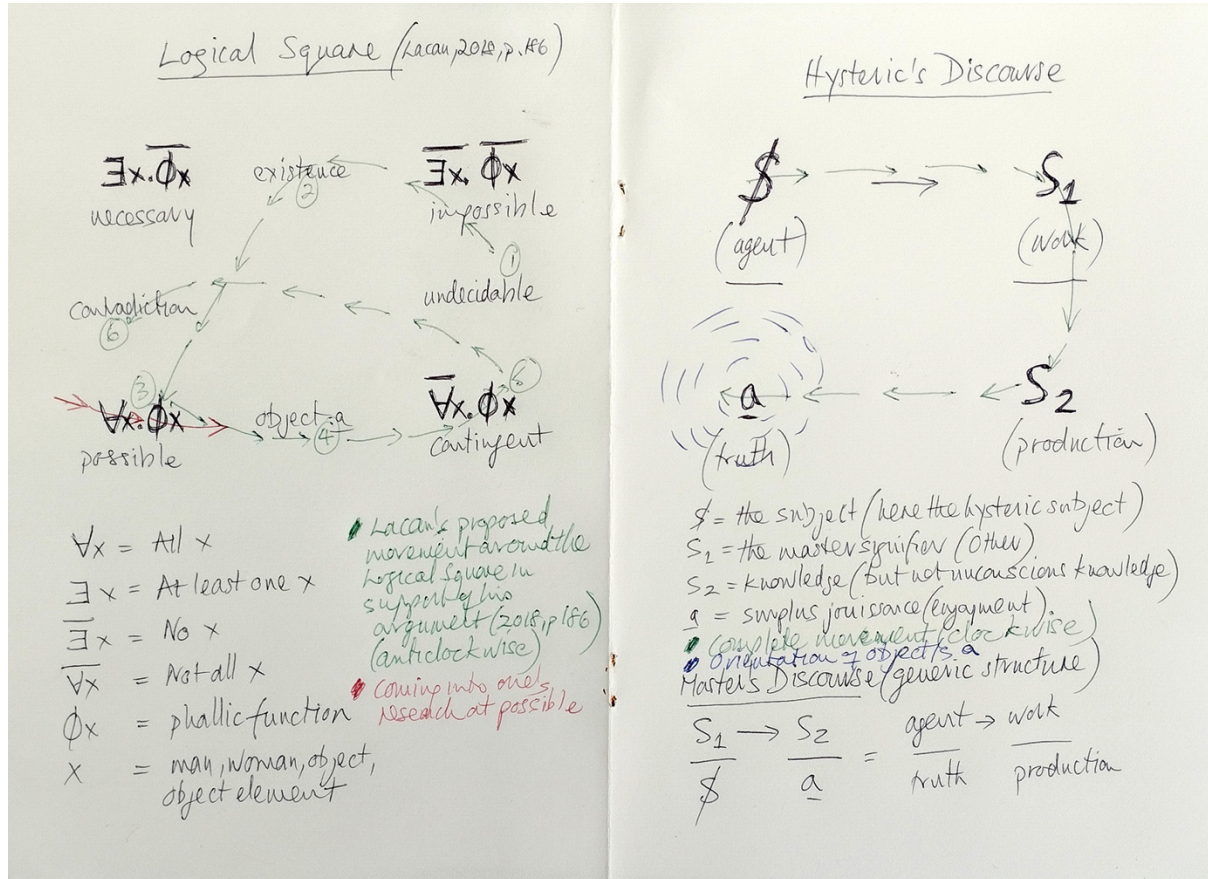 Logical Square (Lacan, 2018, p.186)
∃x.Φ̅x̅ existence ∃̅x̅.Φ̅x̅
② 
necessary impossible
①
contradiction undecidable
⑥
③ ⑥
∀x.Φx object a ∀̅x̅.Φx
④
possible contingent
∀x = All x
∃x = At least one x
∃̅x̅ = No x
∀̅x̅ = Not all x
Φx = phallic function
x = man, woman, object,
object element
Lacan's proposed
movement around the
Logical Square in
support of his
argument (2018, p186)
(anticlockwise)
Coming into one's
research at possible
Hysteric's Discourse
$ S1
(agent) (work)
a S2
(truth) (production)
$ = the subject (here the hysteric subject)
S1 = the master signifier (Other)
S2 = knowledge (but not unconscious knowledge)
a = surplus jouissance (enjoyment).
Complete movement (clockwise)
Orientation of object a
Master's Discourse (generic structure)
S1 → S2 = agent → work
$ a truth production